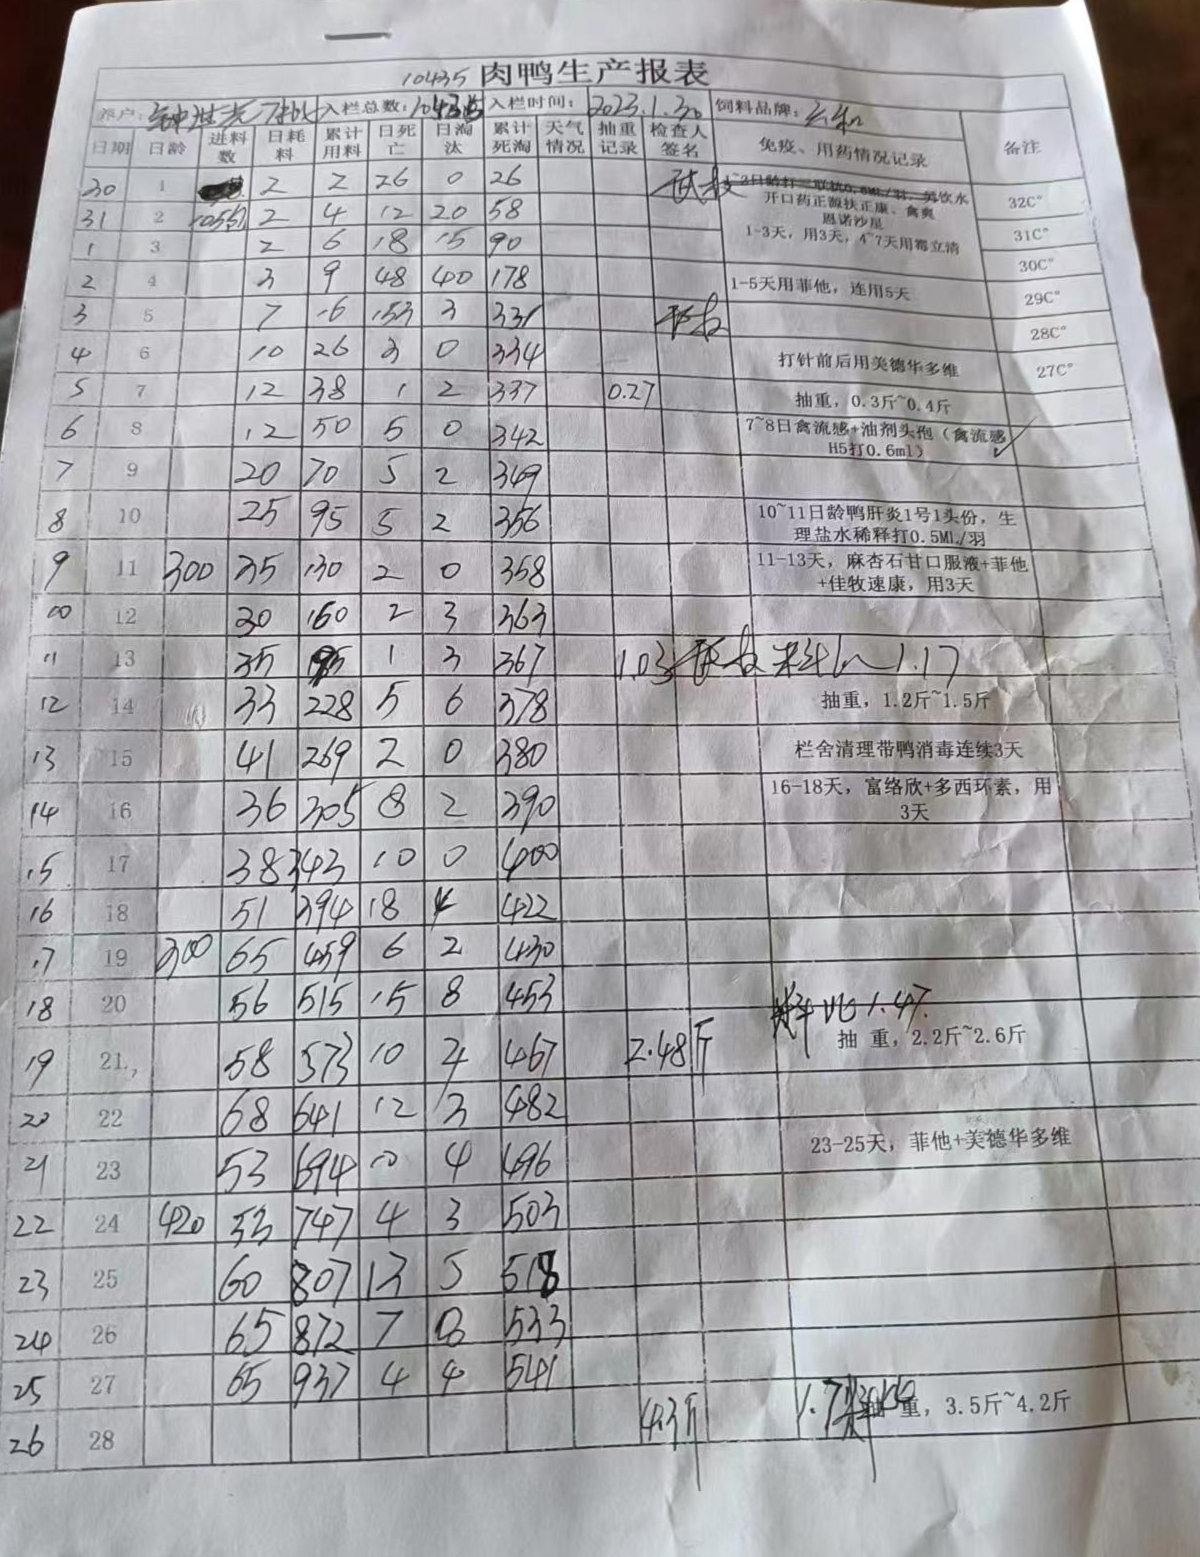 10435 肉鸭生产报表
养户: 入栏总数:10435 入栏时间: 2023.1.30 饲料品牌:
日期 日龄 进料数 日耗料 累计用料 日死亡 日淘汰 累计死淘 天气情况 抽重记录 检查人签名 免疫、用药情况记录 备注
30 1 2 2 26 0 26 1~2日龄打三联抗0.8ML/羽，奥饮水 32C°
31 2 2 4 12 20 58 开口药正源扶正康、禽爽恩诺沙星 31C°
1 3 2 6 18 15 90 1-3天，用3天，4~7天用霉立清 30C°
2 4 3 9 48 40 178 1-5天用菲他，连用5天 29C°
3 5 7 16 153 3 331 28C°
4 6 10 26 3 0 334 打针前后用美德华多维 27C°
5 7 12 38 1 2 337 0.27 抽重，0.3斤~0.4斤
6 8 12 50 5 0 342 7~8日禽流感+油剂头孢（禽流感H5打0.6ml）
7 9 20 70 5 2 349
8 10 25 95 5 2 356 10~11日龄鸭肝炎1号1头份，生理盐水稀释打0.5ML/羽
9 11 300 35 130 2 0 358 11-13天，麻杏石甘口服液+菲他+佳牧速康，用3天
10 12 30 160 2 3 363
11 13 35 195 1 3 367 1.03 料比1.17
12 14 33 228 5 6 378 抽重，1.2斤~1.5斤
13 15 41 269 2 0 380 栏舍清理带鸭消毒连续3天
14 16 36 305 8 2 390 16-18天，富络欣+多西环素，用3天
15 17 38 343 10 0 400
16 18 51 394 18 4 422
17 19 300 65 459 6 2 430
18 20 56 515 15 8 453 料比1.47
19 21 58 573 10 4 467 2.48斤 抽 重，2.2斤~2.6斤
20 22 68 641 12 3 482
21 23 53 694 10 4 496 23-25天，菲他+美德华多维
22 24 420 53 747 4 3 503
23 25 60 807 13 5 518
24 26 65 872 7 8 533
25 27 65 937 4 4 541
26 28 4.3斤 1.7料比 抽 重，3.5斤~4.2斤